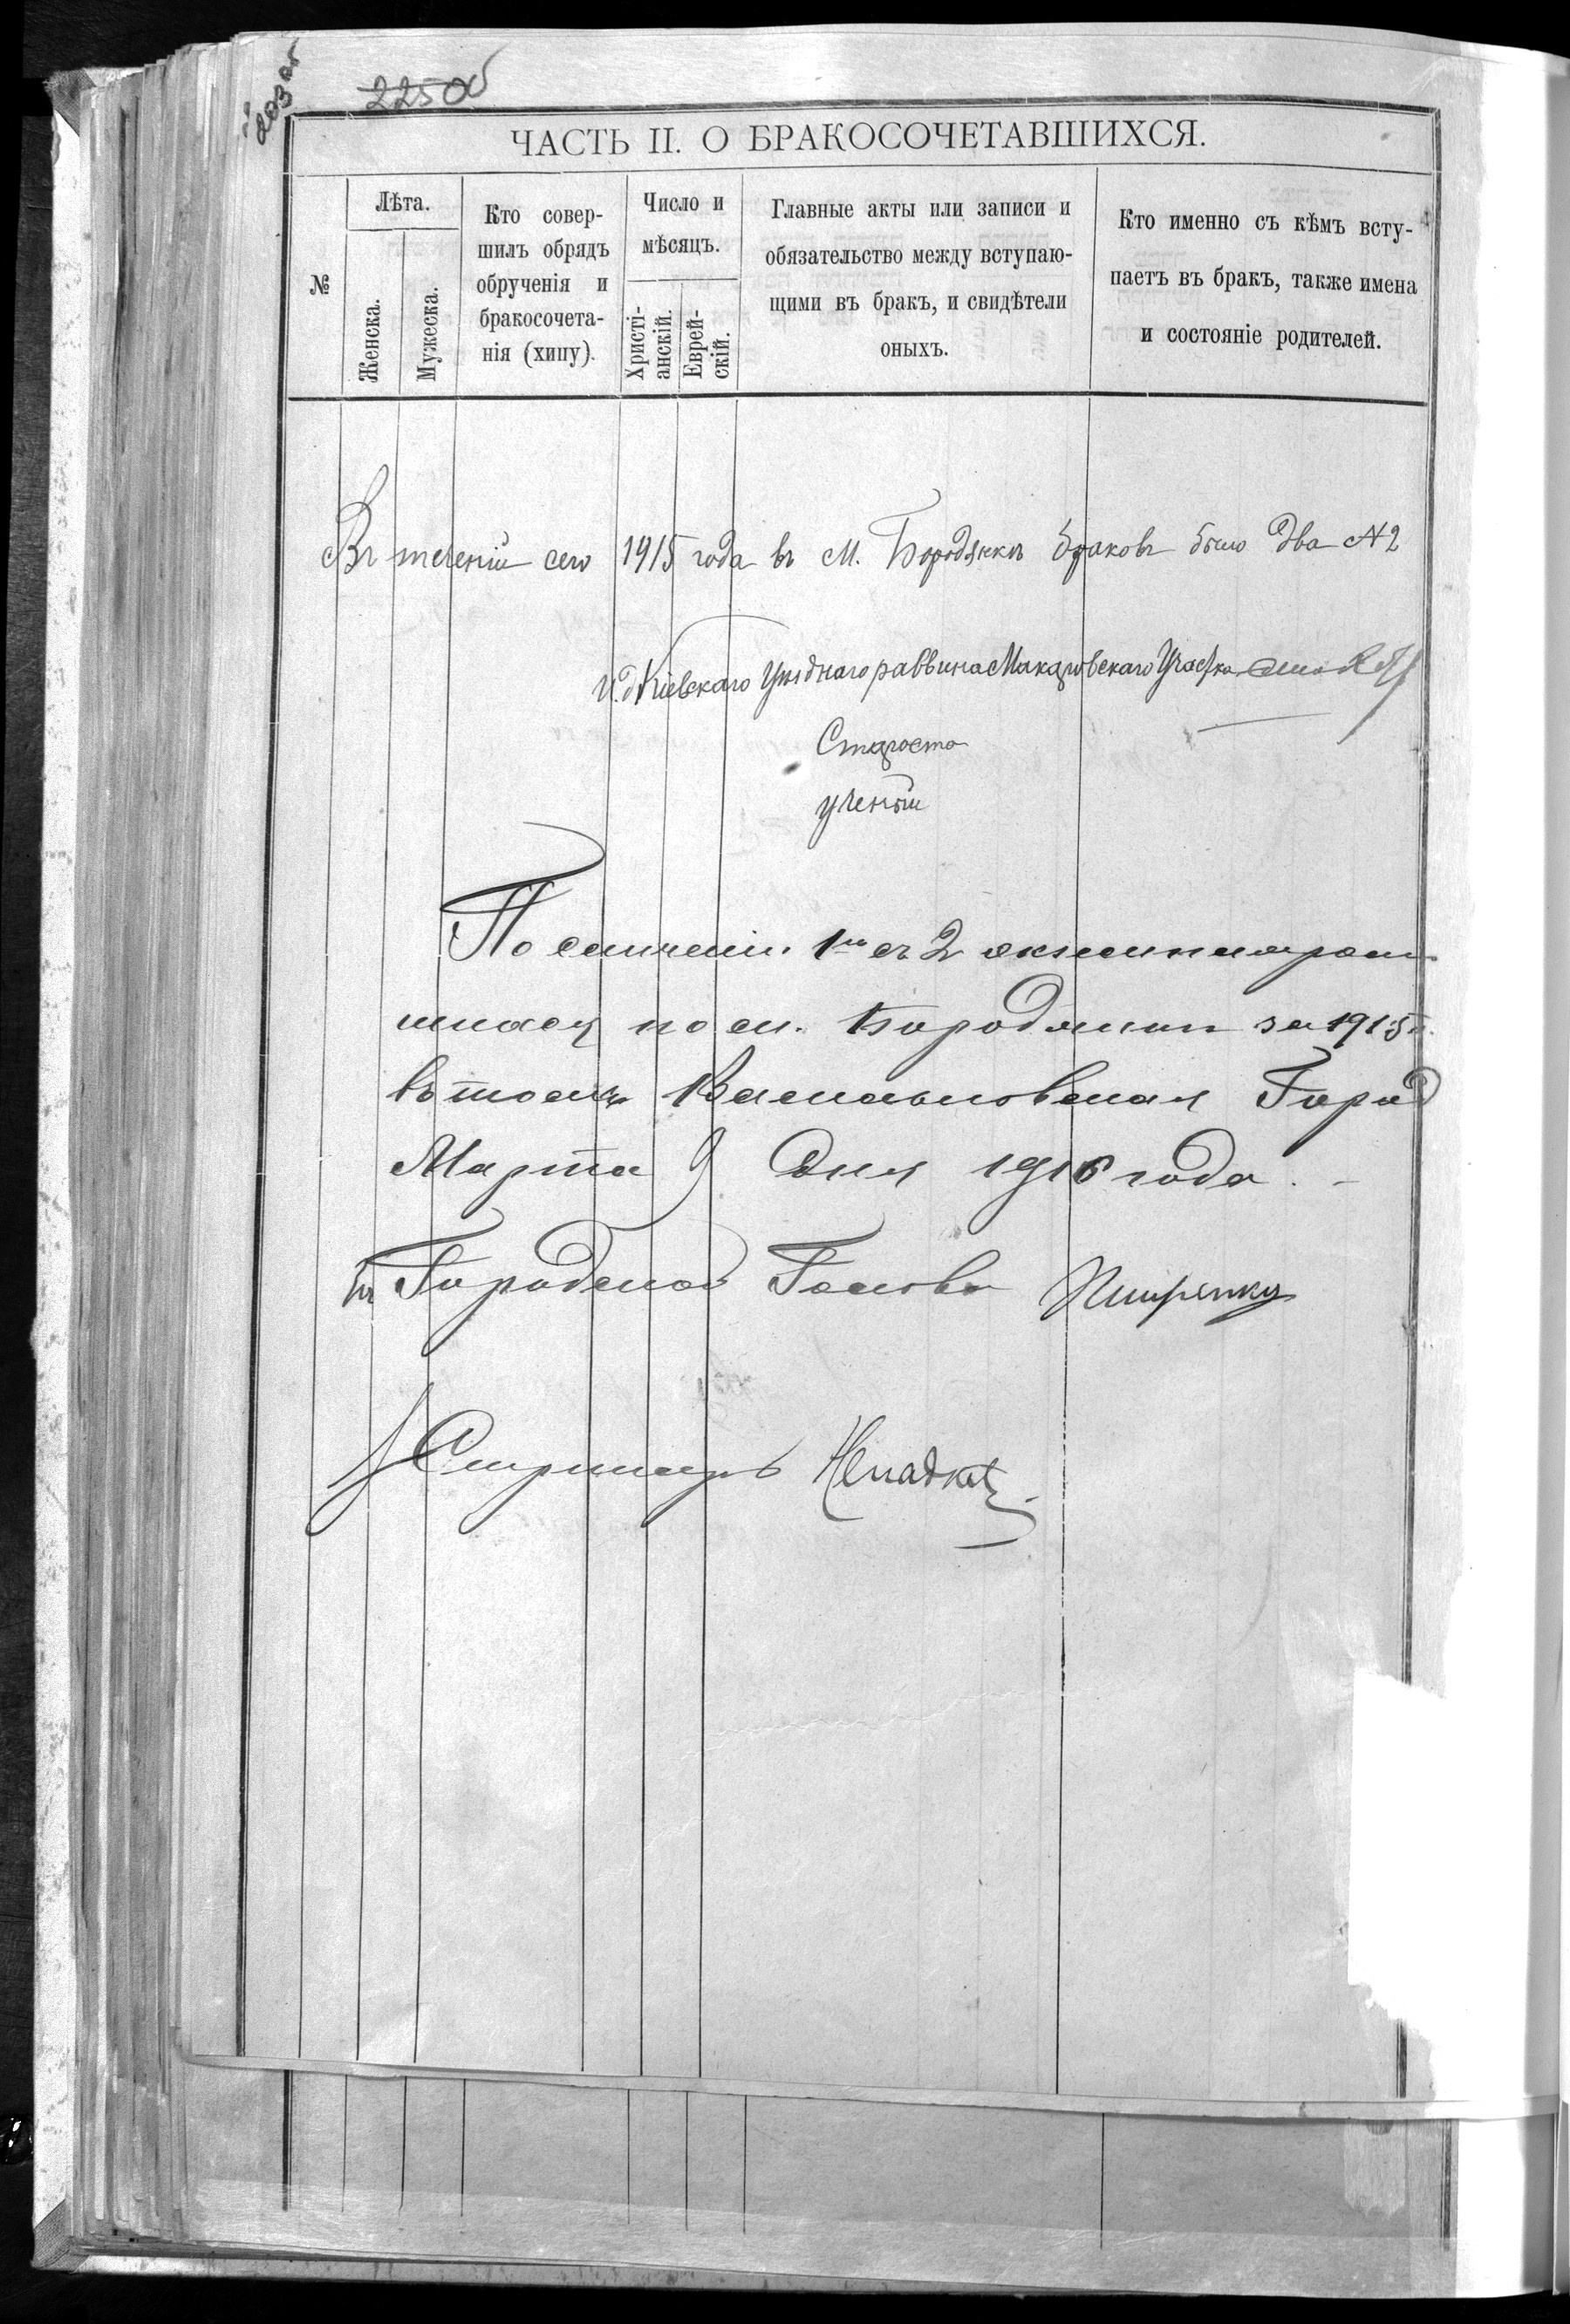 203 об
225 об
ЧАСТЬ II. О БРАКОСОЧЕТАВШИХСЯ.
№
Лѣта.
Женска.
Мужеска.
Кто совер-
шилъ обрядъ
обрученія и
бракосочета-
нія (хипу).
Число и
мѣсяцъ.
Христі-
анскій.
Еврей-
скій.
Главные акты или записи и
обязательство между вступаю-
щими въ бракъ, и свидѣтели
оныхъ.
Кто именно съ кѣмъ всту-
паетъ въ бракъ, также имена
и состояніе родителей.
Въ теченіи сего 1915 года въ М. Бородянкѣ браковъ было два №2
И.д Кіевскаго Уѣзднаго раввина Макаровскаго Участка
Староста
ученый
По сличеніи 1го съ 2 экземпляром
по м. Бородянки за 1915 г.
Васильковская Город
Марта 9 дня 1916 года.
Городской Голова
Секретарь